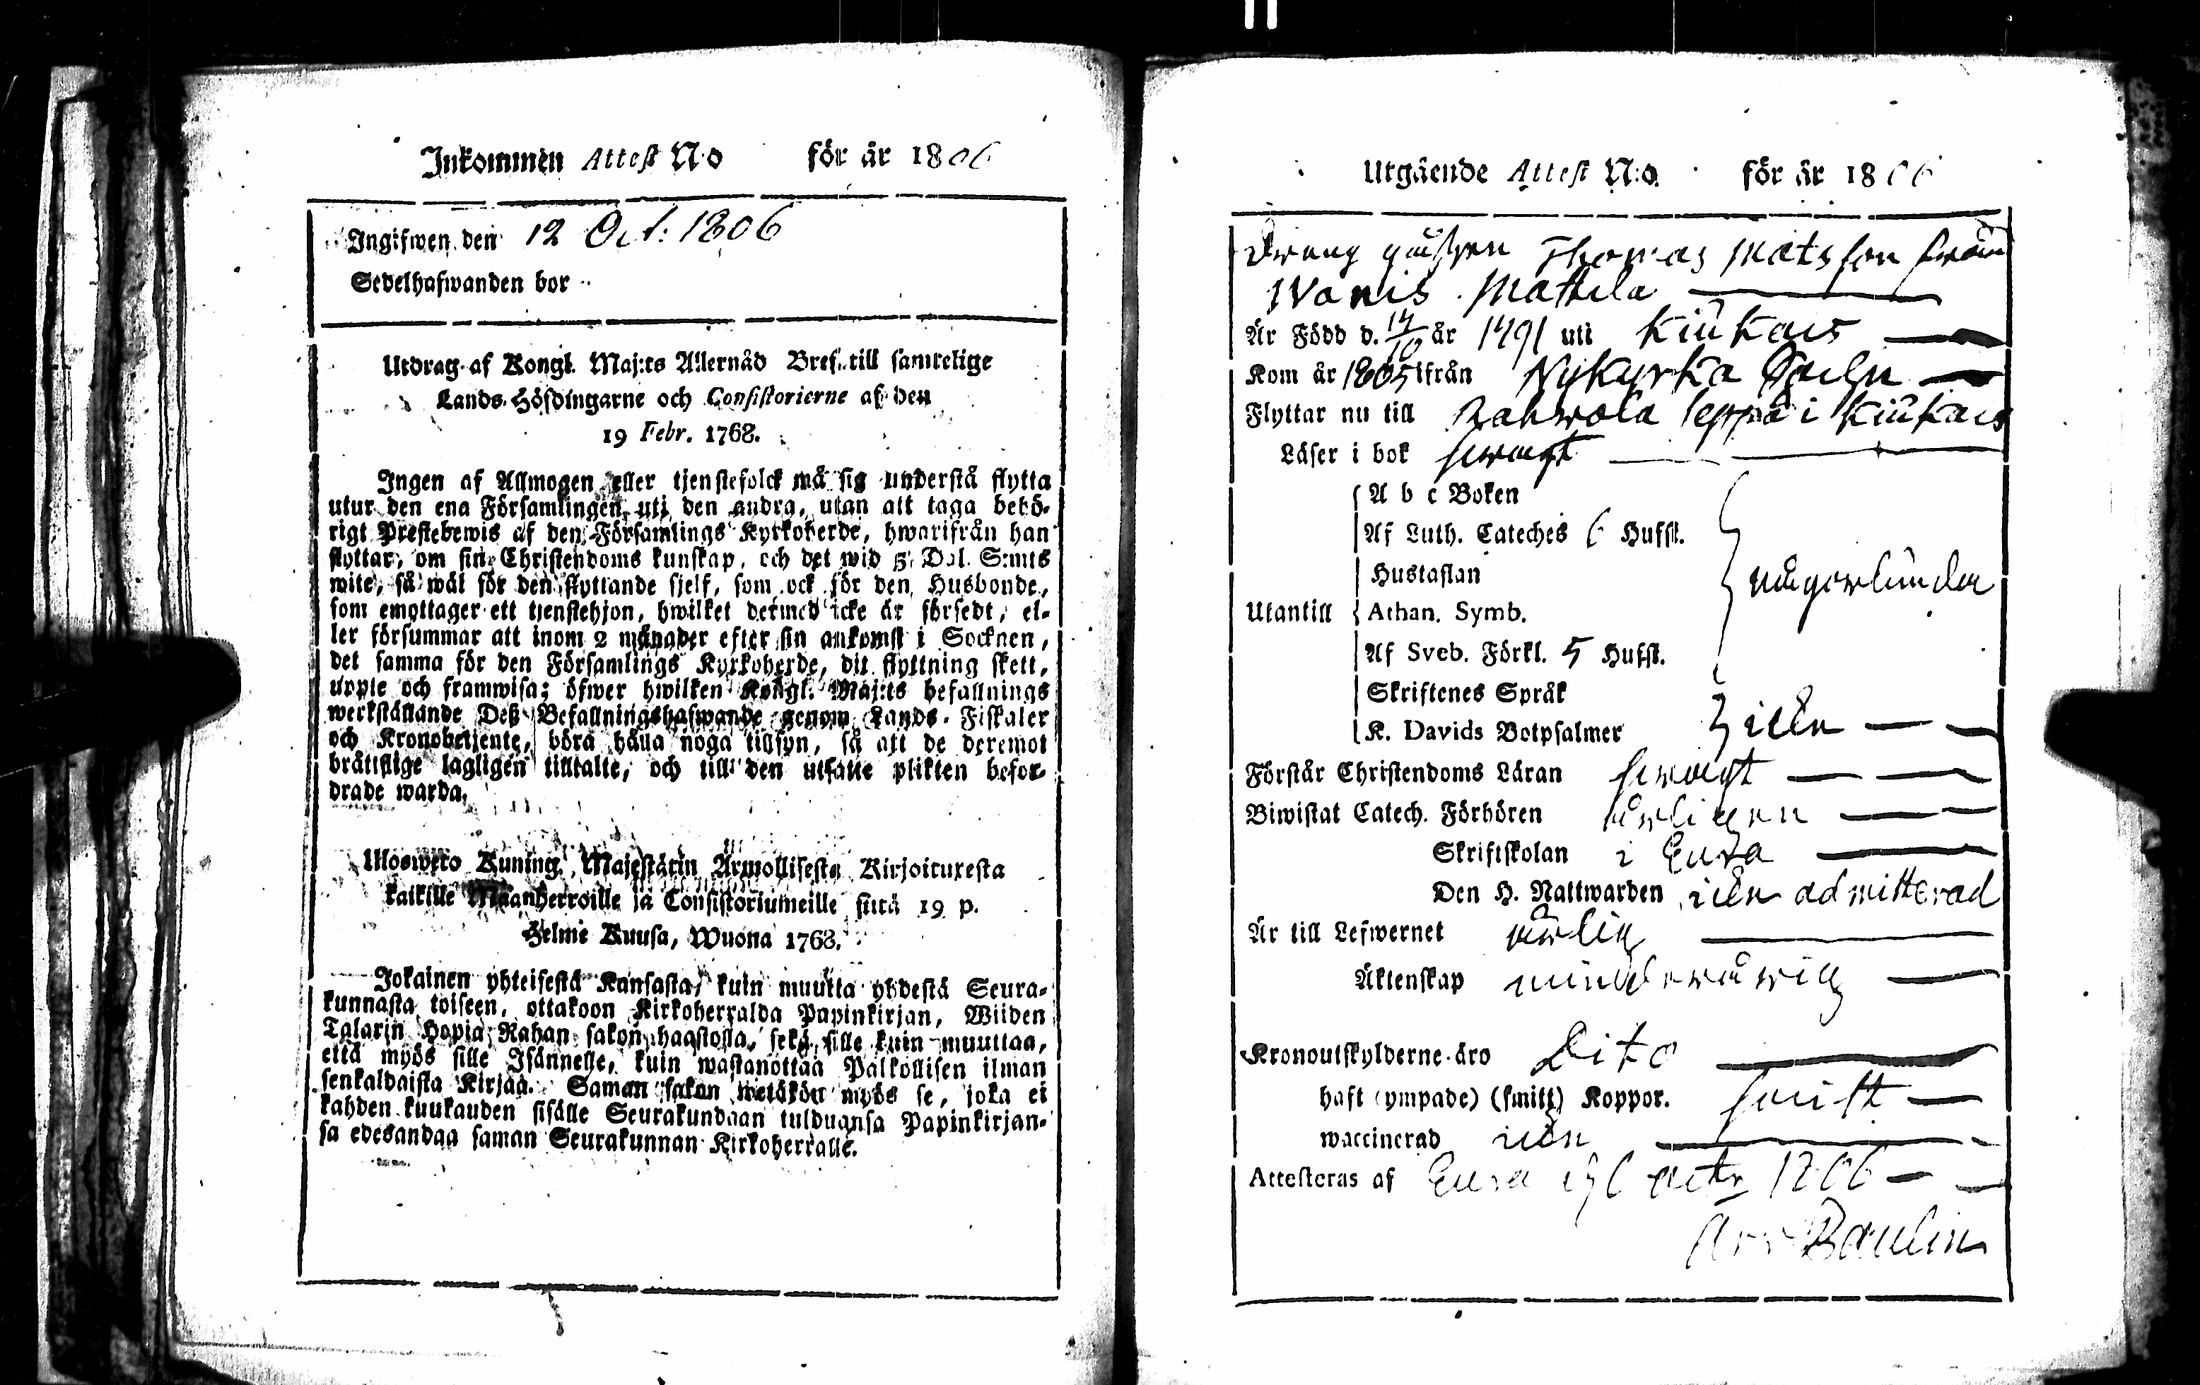 Inkommen Attest N:o för år 1806
Ingifwen den 12 Oct: 1806
Sedelhafwanden bor
Utdrag af Kongl. Maj:ts Allernåd Bref till samtelige
Lands-Höfdingarne och Consistorierne af den
19 Febr. 1768.
Ingen af Allmogen eller tjenstefolck må sig understå flytta
utur den ena Församlingen uti den andra, utan att taga behö-
rigt Prestebewis af den Församlings Kyrkoherde, hwarifrån han
flyttar, om sin Christendoms kunskap, och det wid 5 Dal. S:mts
wite, så wäl för den flyttande sjelf, som ock för den Husbonde,
som emottager ett tjenstehjon, hwilket dermed icke är försedt, el-
ler försummar att inom 2 månader efter sin ankomst i Socknen,
det samma för den Församlings Kyrkoherde, dit flyttning skett,
uppte och framwisa; öfwer hwilken Kongl. Maj:ts befallnings
werkställande Deß Befallningshafwande genom Lands-Fiskaler
och Kronobetjente, böra hålla noga tillsyn, så att de deremot
bråttslige lagligen tilltalte, och till den utsatte plikten befor-
drade warda.
Ulosweto Kuning. Majestätin Armollisesta Kirjoituxesta
kaikille Maanherroille ja Consistoriumeille siitä 19 p.
Helmi Kuusa, Wuona 1768.
Jokainen yhteisestä Kansasta, kuin muutta yhdestä Seura-
kunnasta toiseen, ottakoon Kirkoherralda Papinkirjan, Wiiden
Talarin Hopia Rahan sakon haastolla, sekä sille kuin muuttaa,
että myös sille Isännelle, kuin wastanottaa Palkollisen ilman
senkaldaista Kirjaa. Saman sakon wetäköu myös se, joka ei
kahden kuukauden sisälle Seurakundaan tulduansa Papinkirjan-
sa edesandaa saman Seurakunnan Kirkoherralle.
Utgående Attest N:o för år 1806
Dreng gåssen Thomas Matsson från
Wanis Mattila
Är Född d. 14/10 år 1791 uti Kiukais
Kom år 1805 ifrån Nykyrka Sochn
Flyttar nu till Rahwola Seppä i Kiukais
Läser i bok swagt
A b c Boken
Af Luth. Cateches 6 Hufst.
Hustaflan
Utantill Athan. Symb. någorlunda
Af Sveb. Förkl. 5 Hufst.
Skriftenes Språk
K. Davids Botpsalmer icke
Förstår Christendoms Läran swagt
Biwistat Catech. Förhören årligen
Skriftskolan i Eura
Den H. Nattwarden icke admitterad
Är till Lefwernet ärlig
Äktenskap minderårig
Kronoutskylderne äro Dito
haft (ympade) (smitt) Koppor. smitt
waccinerad icke
Attesteras af Eura d 6 octr 1806
Arv Paulin